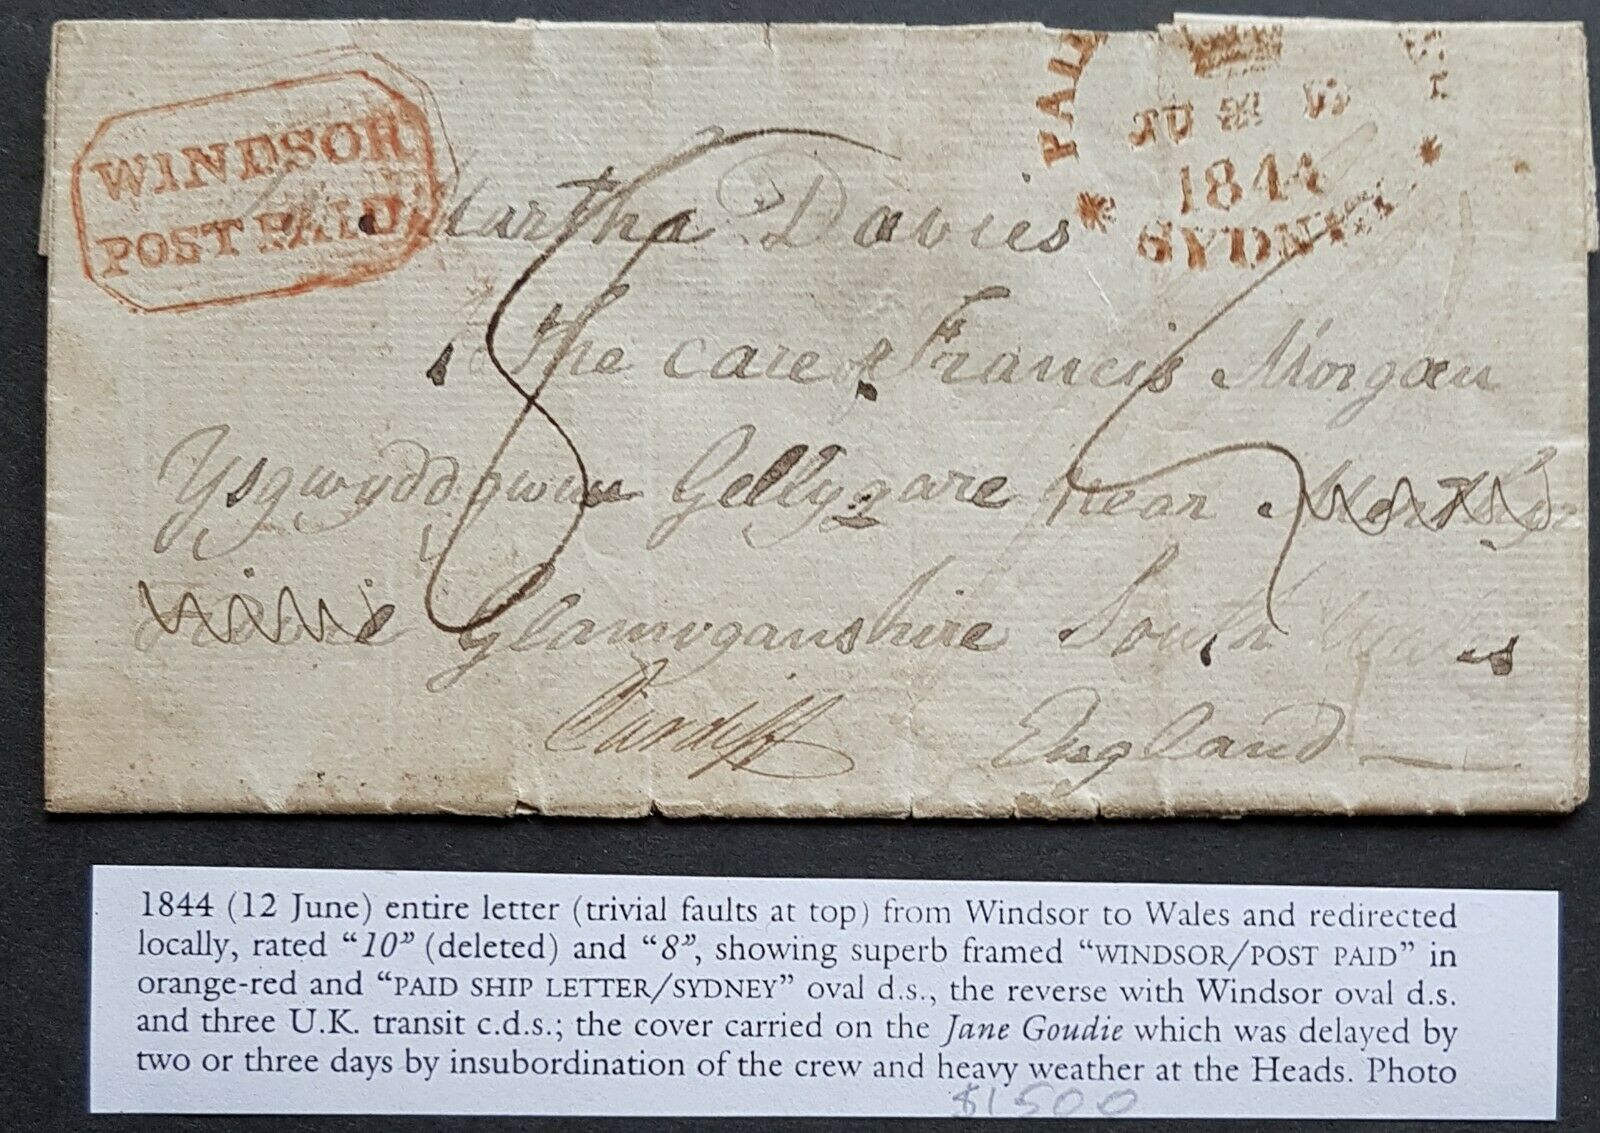 WINDSOR
POST PAID
PAI
JU
1844
SYDNEY
Martha Davies
the care of Francis Morgan
Ysgwyddgwin Gellygare near Merthyr
Glamorganshire South Wales
Cardiff England
8
1844 (12 June) entire letter (trivial faults at top) from Windsor to Wales and redirected
locally, rated “10” (deleted) and “8”, showing superb framed “WINDSOR/POST PAID” in
orange-red and “PAID SHIP LETTER/SYDNEY” oval d.s., the reverse with Windsor oval d.s.
and three U.K. transit c.d.s.; the cover carried on the Jane Goudie which was delayed by
two or three days by insubordination of the crew and heavy weather at the Heads. Photo
$1500